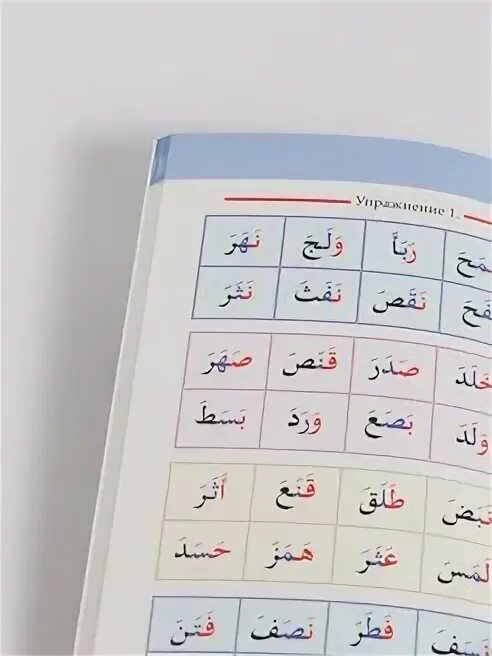 Упражнение 1.
رَبَأَ وَلَجَ نَهَرَ
نَقَصَ نَفَثَ نَثَرَ
خَلَدَ صَدَرَ قَنَصَ صَهَرَ
وَلَدَ بَصَعَ وَرَدَ بَسَطَ
نَبَضَ طَلَقَ قَنَعَ أَثَرَ
لَمَسَ عَثَرَ هَمَزَ حَسَدَ
نَسَفَ فَطَرَ نَصَفَ فَتَنَ